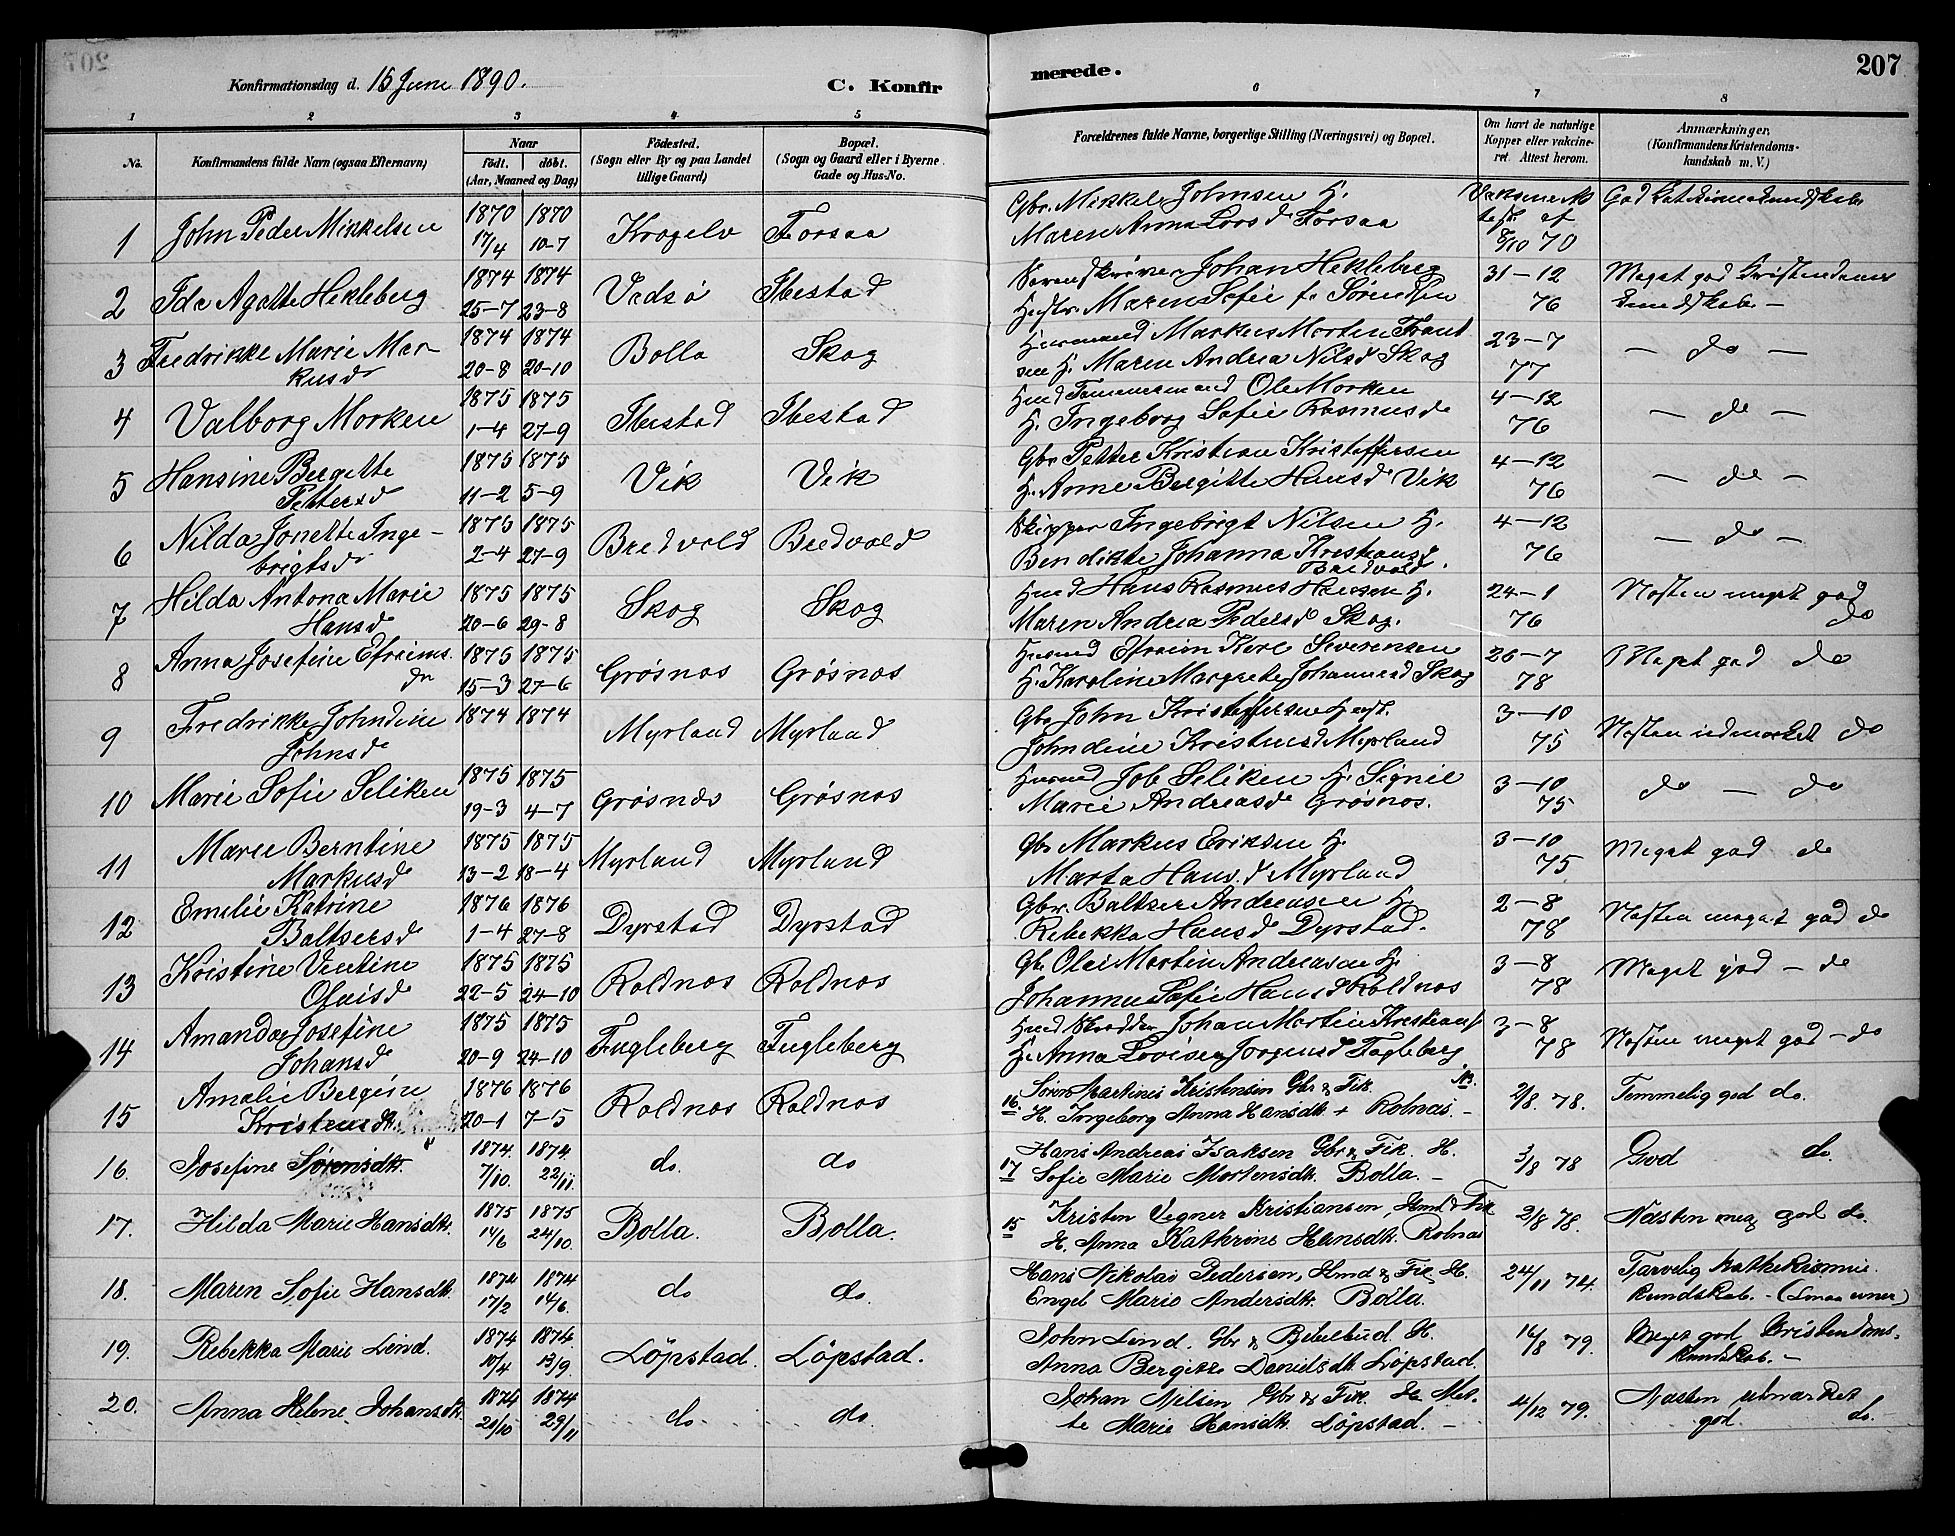 207
Konfirmationsdag d. 15 Juni 1890.
C. Konfirmerede.
1 2 3 4 5 6 7 8
No.
Konfirmandens fulde Navn (ogsaa Efternavn)
Naar
født. døbt.
(Aar, Maaned og Dag)
Födested.
(Sogn eller By og paa Landet
tillige Gaard)
Bopæl.
(Sogn og Gaard eller i Byerne
Gade og Hus-No.
Forældrenes fulde Navne, borgerlige Stilling (Næringsvei) og Bopæl.
Om havt de naturlige
Kopper eller vakcine-
ret. Attest herom.
Anmærkninger,
(Konfirmandens Kristendoms-
kundskab m. V.)
1 John Peder Mikkelsen 1870 17/4 1870 10-7 Krogelv Forsaa
Gbr. Mikkel Johnsen H.
Maren Anna Larsd Forsaa
8/10 70
2 Ida Agatte Hekleberg 1874 25-7 1874 23-8 Vadsö Ibestad
Johan Hekleberg
Hustr. Maren Sofie f. Sørensen
31-12 76 Meget god Kristendoms
kundskab -
3 Fredrikke Marie Mar-
kusd 1874 20-8 1874 20-10 Bolla Skog
Husmand Markus Morten Frant
sen H. Maren Andrea Nilsd Skog
23-7 77 - do -
4 Valborg Morken 1875 1-4 1875 27-9 Ibestad Ibestad
Ole Morken
H. Ingeborg Sofie Rasmusd
4-12 76 - do -
5 Hansine Bergitte
Pettersd 1875 11-2 1875 5-9 Vik Vik
Gbr Petter Kristian Kristoffersen
H. Anne Bergitte Hansd Vik
4-12 76 - do -
6 Nilda Jonette Inge-
brigtsd 1875 2-4 1875 27-9 Bredvold Bredvold
Skipper Ingebrigt Nilsen H.
Bendikte Johanna Kristiansd
Bredvold.
4-12 76 - do -
7 Hilda Antona Marie
Hansd 1875 20-6 1875 29-8 Skog Skog
Husmd Hans Rasmus Hansen H.
Maren Andrea Pedersd Skog.
24-1 76 Næsten meget god
do
8 Anna Josefine Efraims-
dr 1875 15-3 1875 27-6 Grøsnæs Grøsnæs
Husmd Efraim Karl Severensen
H. Karoline Margrete Johannesd Skog
26-7 78 Meget god do
9 Fredrikke Johndine
Johnsd 1874 1874 Myrland Myrland
Gbr John Kristoffersen Hust.
Johndine Kristensd Myrland
3-10 75 Næsten udmærket do
10 Marie Sofie Seliken 1875 19-3 1875 4-7 Grøsnæs Grøsnæs
Husmd Job Seliken H. Signil
Marie Andreasd Grøsnæs.
3-10 75 do - do
11 Marie Berntine
Markusd 1875 13-2 1875 18-4 Myrland Myrland
Gbr Markus Eriksen H.
Marta Hansd Myrland
3-10 75 Meget god do
12 Emilie Katrine
Baltsersd 1876 1-4 1876 27-8 Dyrstad Dyrstad
Gbr. Baltser Andreasen H.
Rebekka Hansd Dyrstad.
2-8 78 Næsten meget god do
13 Kristine Ventine
1875 22-5 1875 24-10 Roldnæs Roldnæs
Gbr Martin Andreasen H.
Johanna Sofie Hansd Roldnæs
3-8 78 Meget god - do
14 Amanda Josefine
Johansd 1875 20-9 1875 24-10 Fugleberg Fugleberg
Husmd Skrædder Johan Martin Kristians
H. Anna Lovise Jorgensd Fugleberg
3-8 78 Næsten meget god - do
15 Amalie Bergine
Kristensdtr 1876 20-1 1876 7-5 Roldnæs Roldnæs
16. Søren Martinus Kristensen Gbr & Fisk.
H. Ingeborg Anna Hansdtr + Rolnæs. -
2/8. 78. Temmelig god do.
16. Josefine Sørensdtr. 1874. 7/10. 1874. 22/11. do. do
17 Hans Andreas Isaksen Gbr & Fisk. H.
Sofie Marie Mortensdtr. Bolla. -
3/8 78 God do.
17. Hilda Marie Hansdtr. 1875 14/6 1875 24/10. Bolla. Bolla.
15 Kristen Kristiansen, Hmd & Fisk
H. Anna Kathrine Hansdtr. Rolnæs
2/8 78. Næsten meg god do.
18. Maren Sofie Hansdtr. 1874 17/2 1874 14/6. do do.
Hans Nikolai Pedersen, Hmd & Fisk H.
Engel Marie Andersdtr. Bolla.
24/11 74. Tarvelig
kundskab. - (Smaa evner)
19. Rebekka Marie Lind. 1874 10/4 1874. 13/9. Löpstad. Löpstad.
John Lind. Gbr & H.
Anna Bergitte Danielsdtr Löpstad.
16/8 79. Meget god Kristendoms-
kundskab. -
20. Anna Helene Johansdtr. 1874 21/10 1874 29/11 do. do.
Johan Nilsen Gbr & Fisk. H. Met-
te Marie Hansdtr. Löpstad. -
4/12 79. Næsten udmærket
god. do.